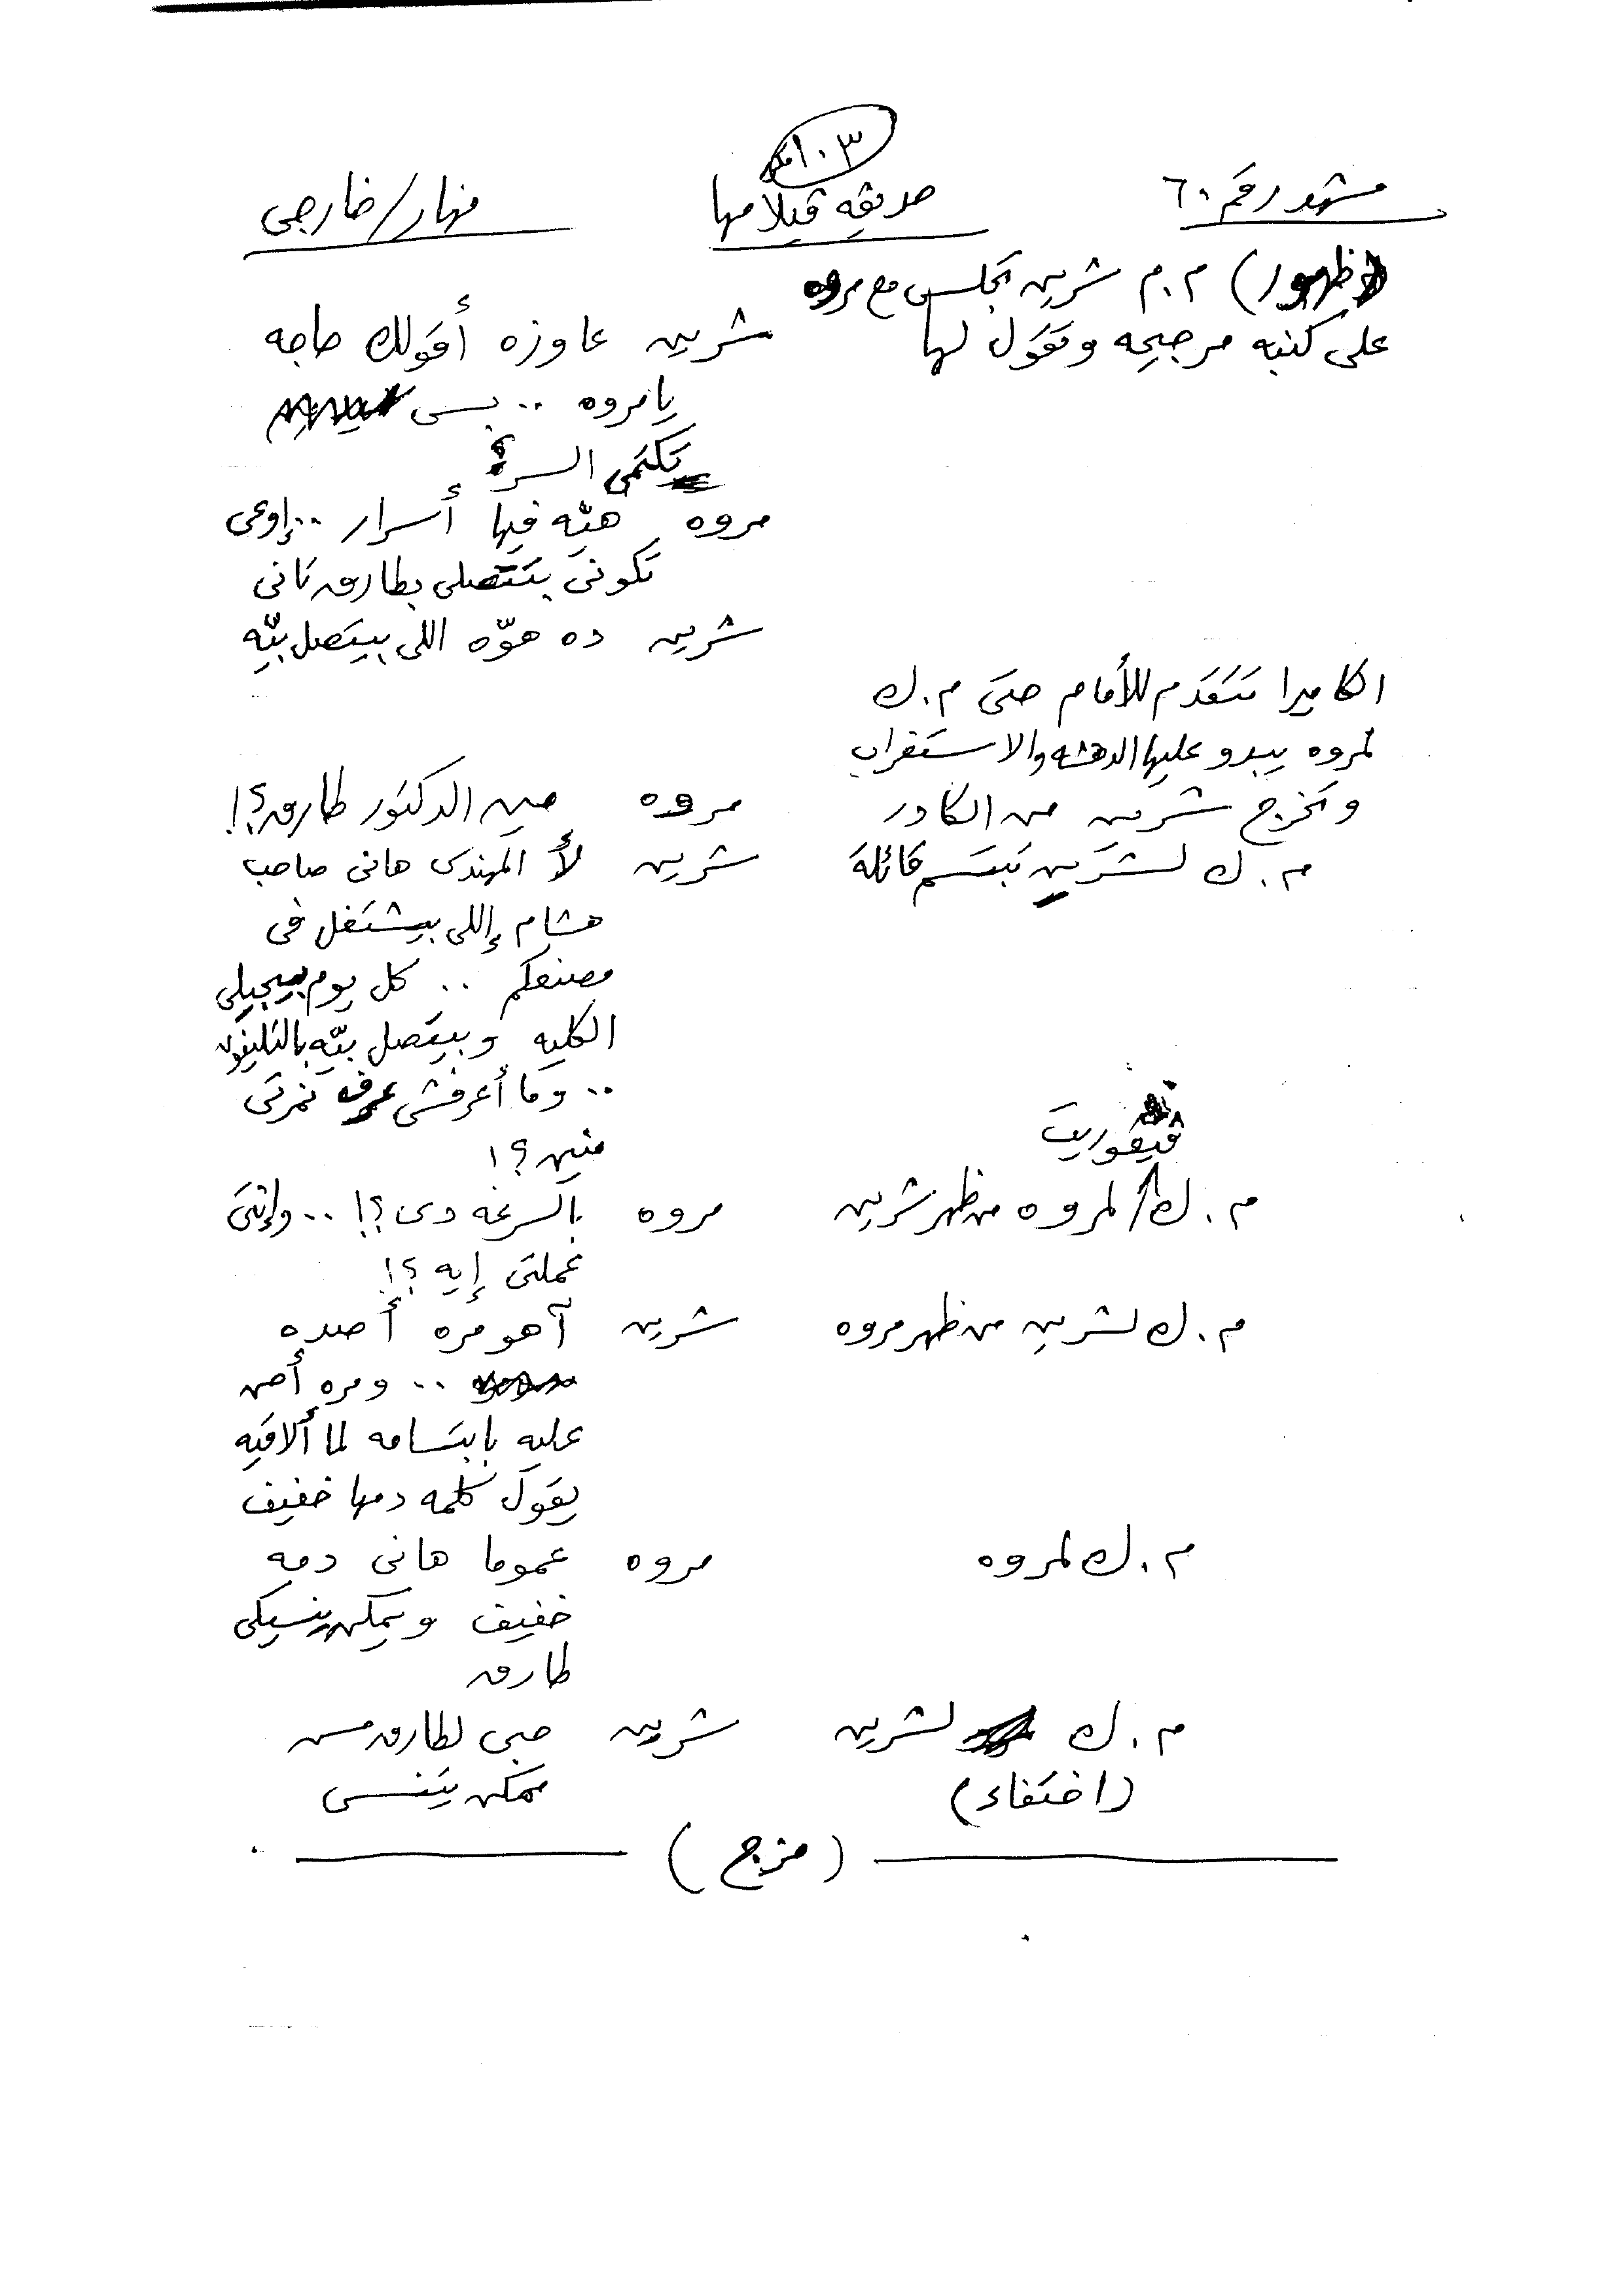 ١٠٣
مشهد رقم ٦٠ حديقه ڤيلا مها نهار/خارجى
(ظهور) م.م شرين تجلس مع مروه
على كنبه مرجيحه وتقول لها شرين عاوزه أقولك حاجه
يا مروه .. بس
تكتمى السر؟
مروه هيّه فيها أسرار .. إوعى
تكونى بتتصلى بطارق تانى
شرين ده هوّه اللى بيتصل بيّه
الكاميرا تتقدم للأمام حتى م.ك
لمروه يبدو عليها الدهشه والاستغراب
وتخرج شرين من الكادر مروه مين الدكتور طارق؟!
م.ك لشرين تبتسم قائلة شرين لأ المهندس هانى صاحب
هشام إللى بيشتغل فى
مصنعكم .. كل يوم بييجيلى
الكليه وبيتصل بيّه بالتليفون
.. وما أعرفش عرف نمرتى
منين؟!
ڤيفوريت
م.ك/لمروه من ظهر شرين مروه بالسرعه دى؟! .. وإنتى
عملتى إيه؟!
م.ك لشرين من ظهر مروه شرين آهو مره أصده
.. ومره أحن
عليه بابتسامه لما ألاقيه
يقول كلمه دمها خفيف
م.ك لمروه مروه عموما هانى دمه
خفيف ويمكن ينسيكى
طارق
م.ك لشرين شرين حبى لطارق مش
(اختفاء) ممكن يتنسى
(مزج)